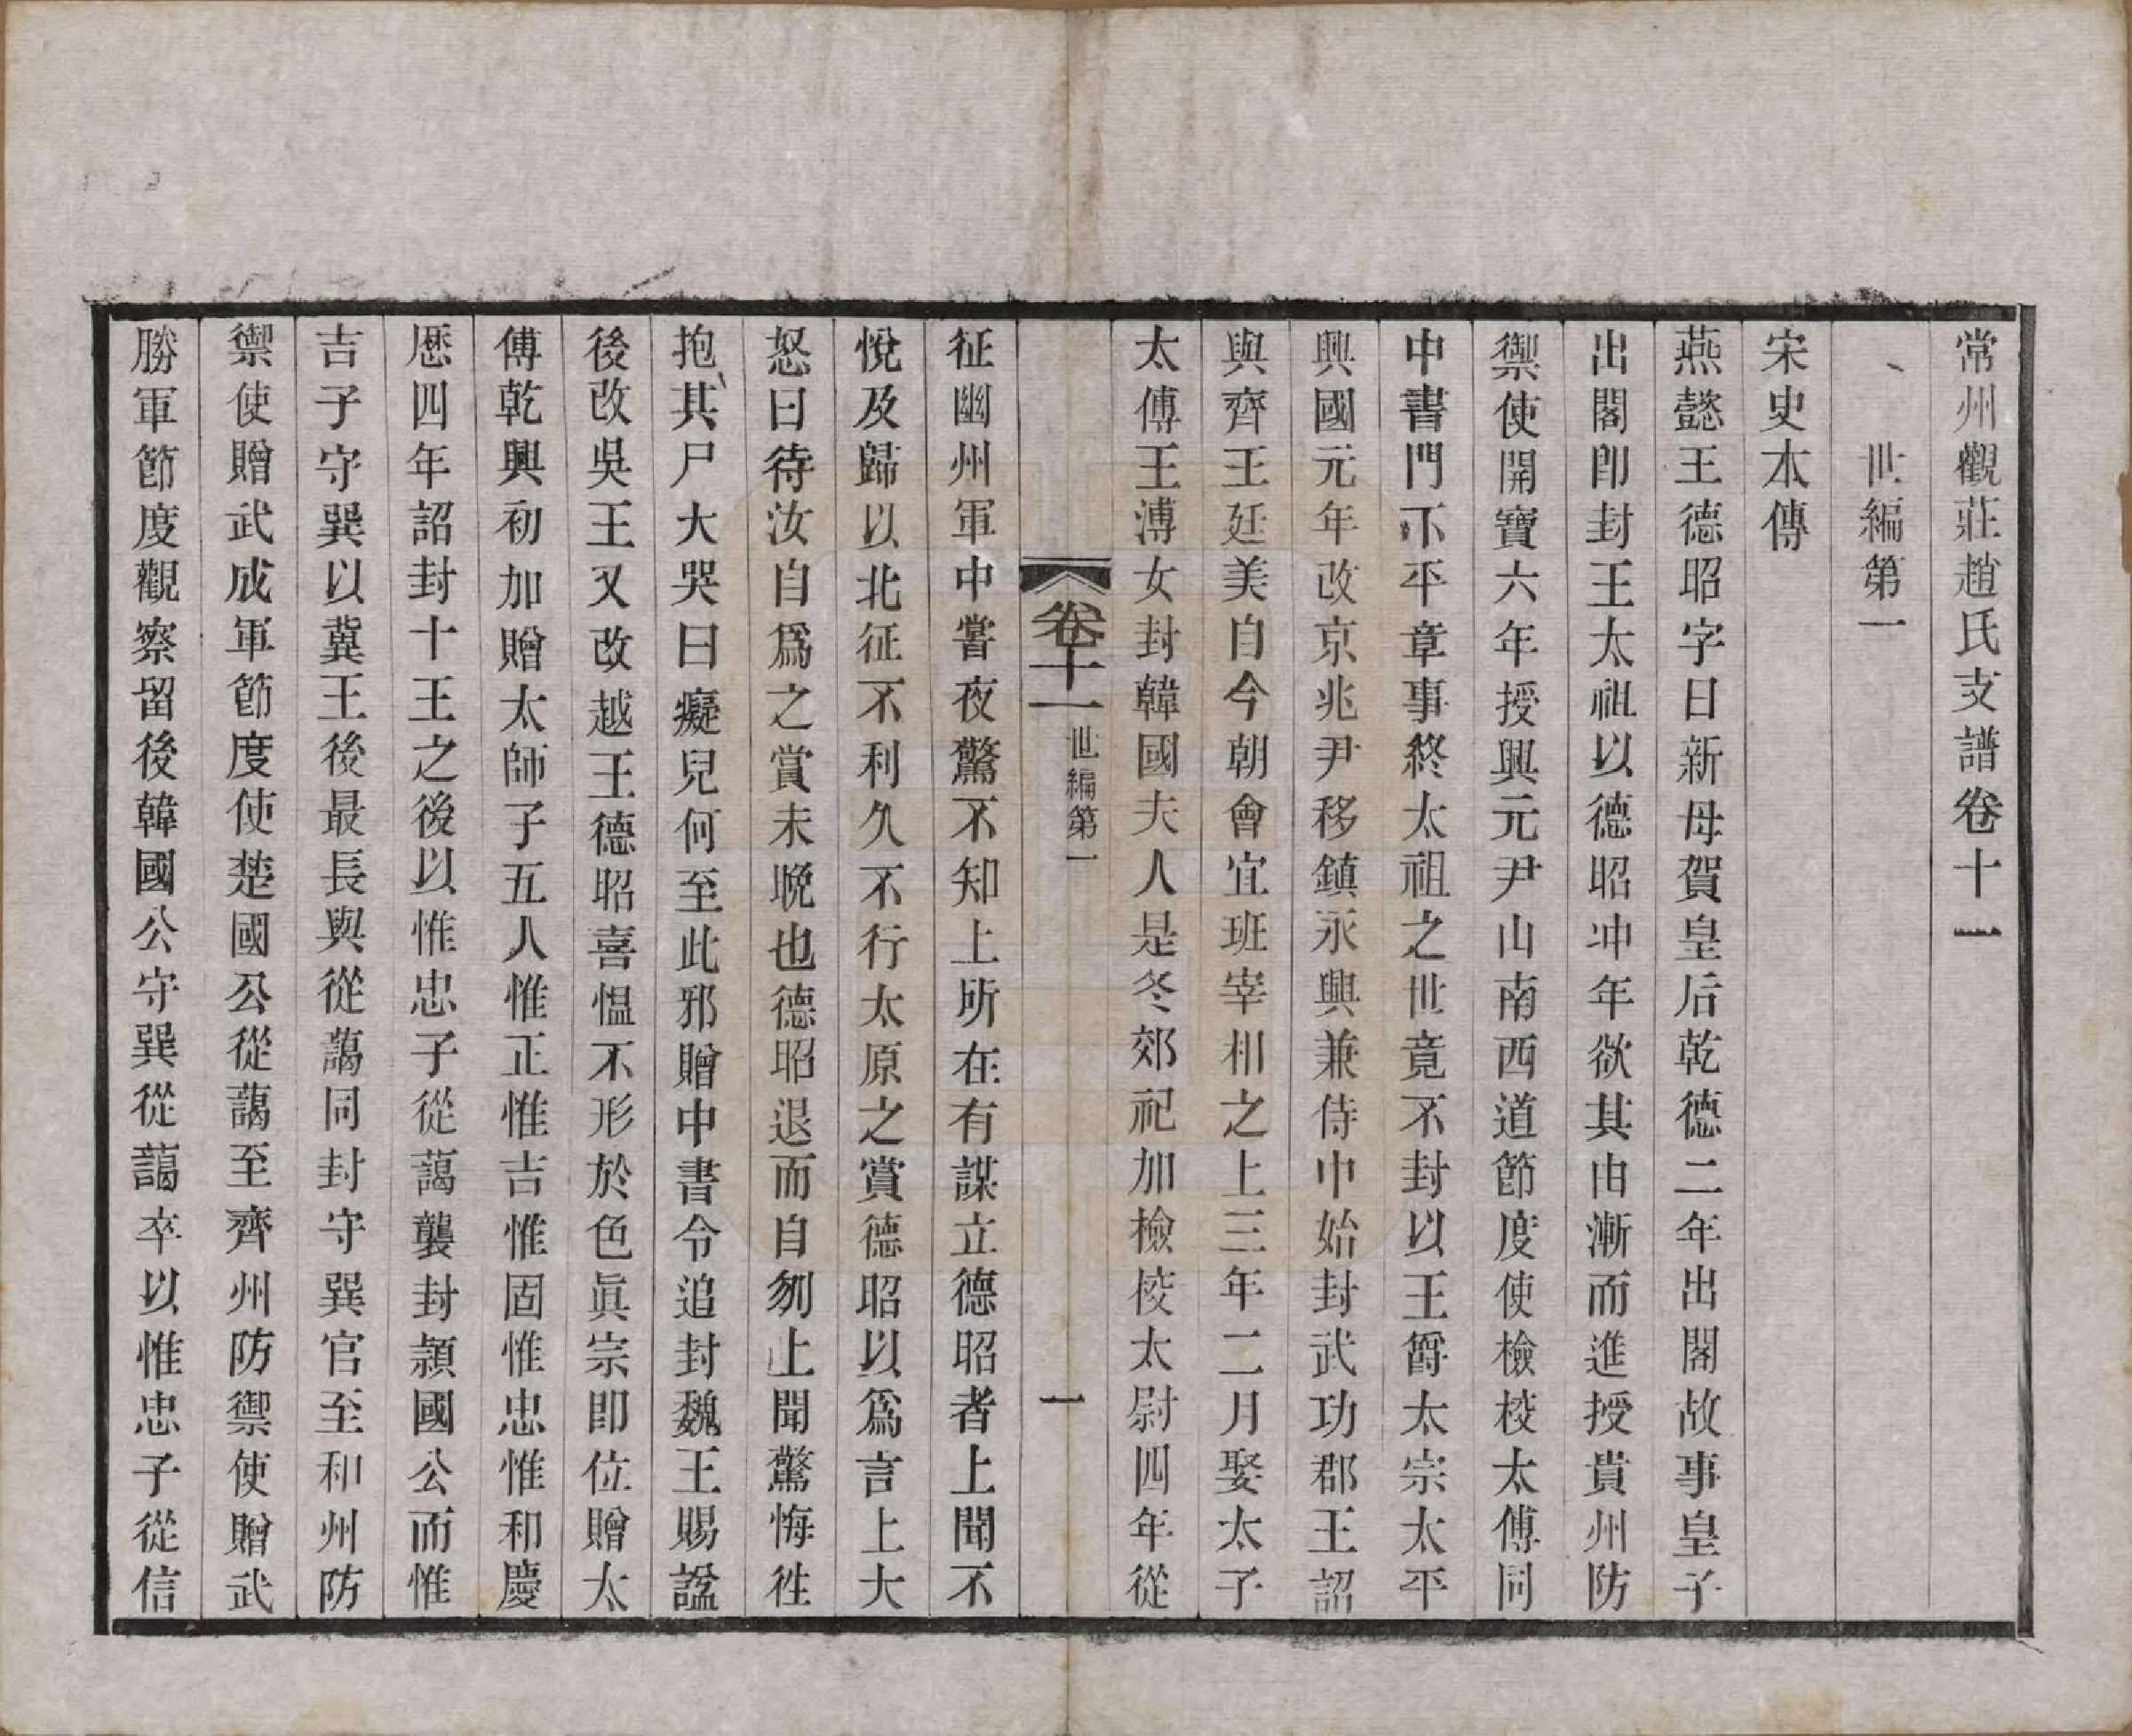 常州觀莊趙氏支譜卷十一
世編第一
宋史本傳
燕懿王德昭字日新母賀皇后乾德二年出閣故事皇子
出閣卽封王太祖以德昭冲年欲其由漸而進授貴州防
禦使開寶六年授興元尹山南西道節度使檢校太傅同
中書門下平章事終太祖之世竟不封以王爵太宗太平
興國元年改京兆尹移鎮永興兼侍中始封武功郡王詔
與齊王廷美自今朝會宜班宰相之上三年二月娶太子
太傅王溥女封韓國夫人是冬郊祀加檢校太尉四年從
卷十一 世編第一 一
征幽州軍中嘗夜驚不知上所在有謀立德昭者上聞不
悅及歸以北征不利久不行太原之賞德昭以爲言上大
怒曰待汝自爲之賞未晚也德昭退而自刎上聞驚悔往
抱其尸大哭曰癡兒何至此邪贈中書令追封魏王賜諡
後改吳王又改越王德昭喜慍不形於色眞宗卽位贈太
傅乾興初加贈太師子五人惟正惟吉惟固惟忠惟和慶
厯四年詔封十王之後以惟忠子從藹襲封潁國公而惟
吉子守巽以冀王後最長與從藹同封守巽官至和州防
禦使贈武成軍節度使楚國公從藹至齊州防禦使贈武
勝軍節度觀察留後韓國公守巽從藹卒以惟忠子從信